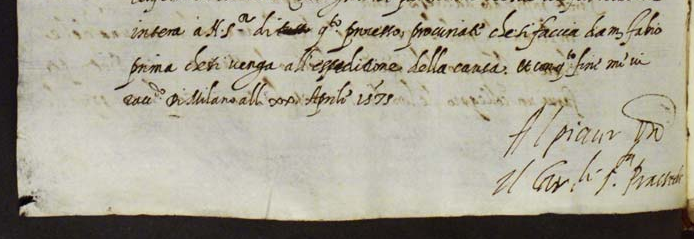 intera à N. S.re di tutto q.to processo, procurate che si faccia da m. fabio
prima che si venga all'espeditione della causa. et con q.to fine mi vi
racc.do Di Milano alli xxi Aprile 1575
Al piacer
Il Car.le S.ta Prassede